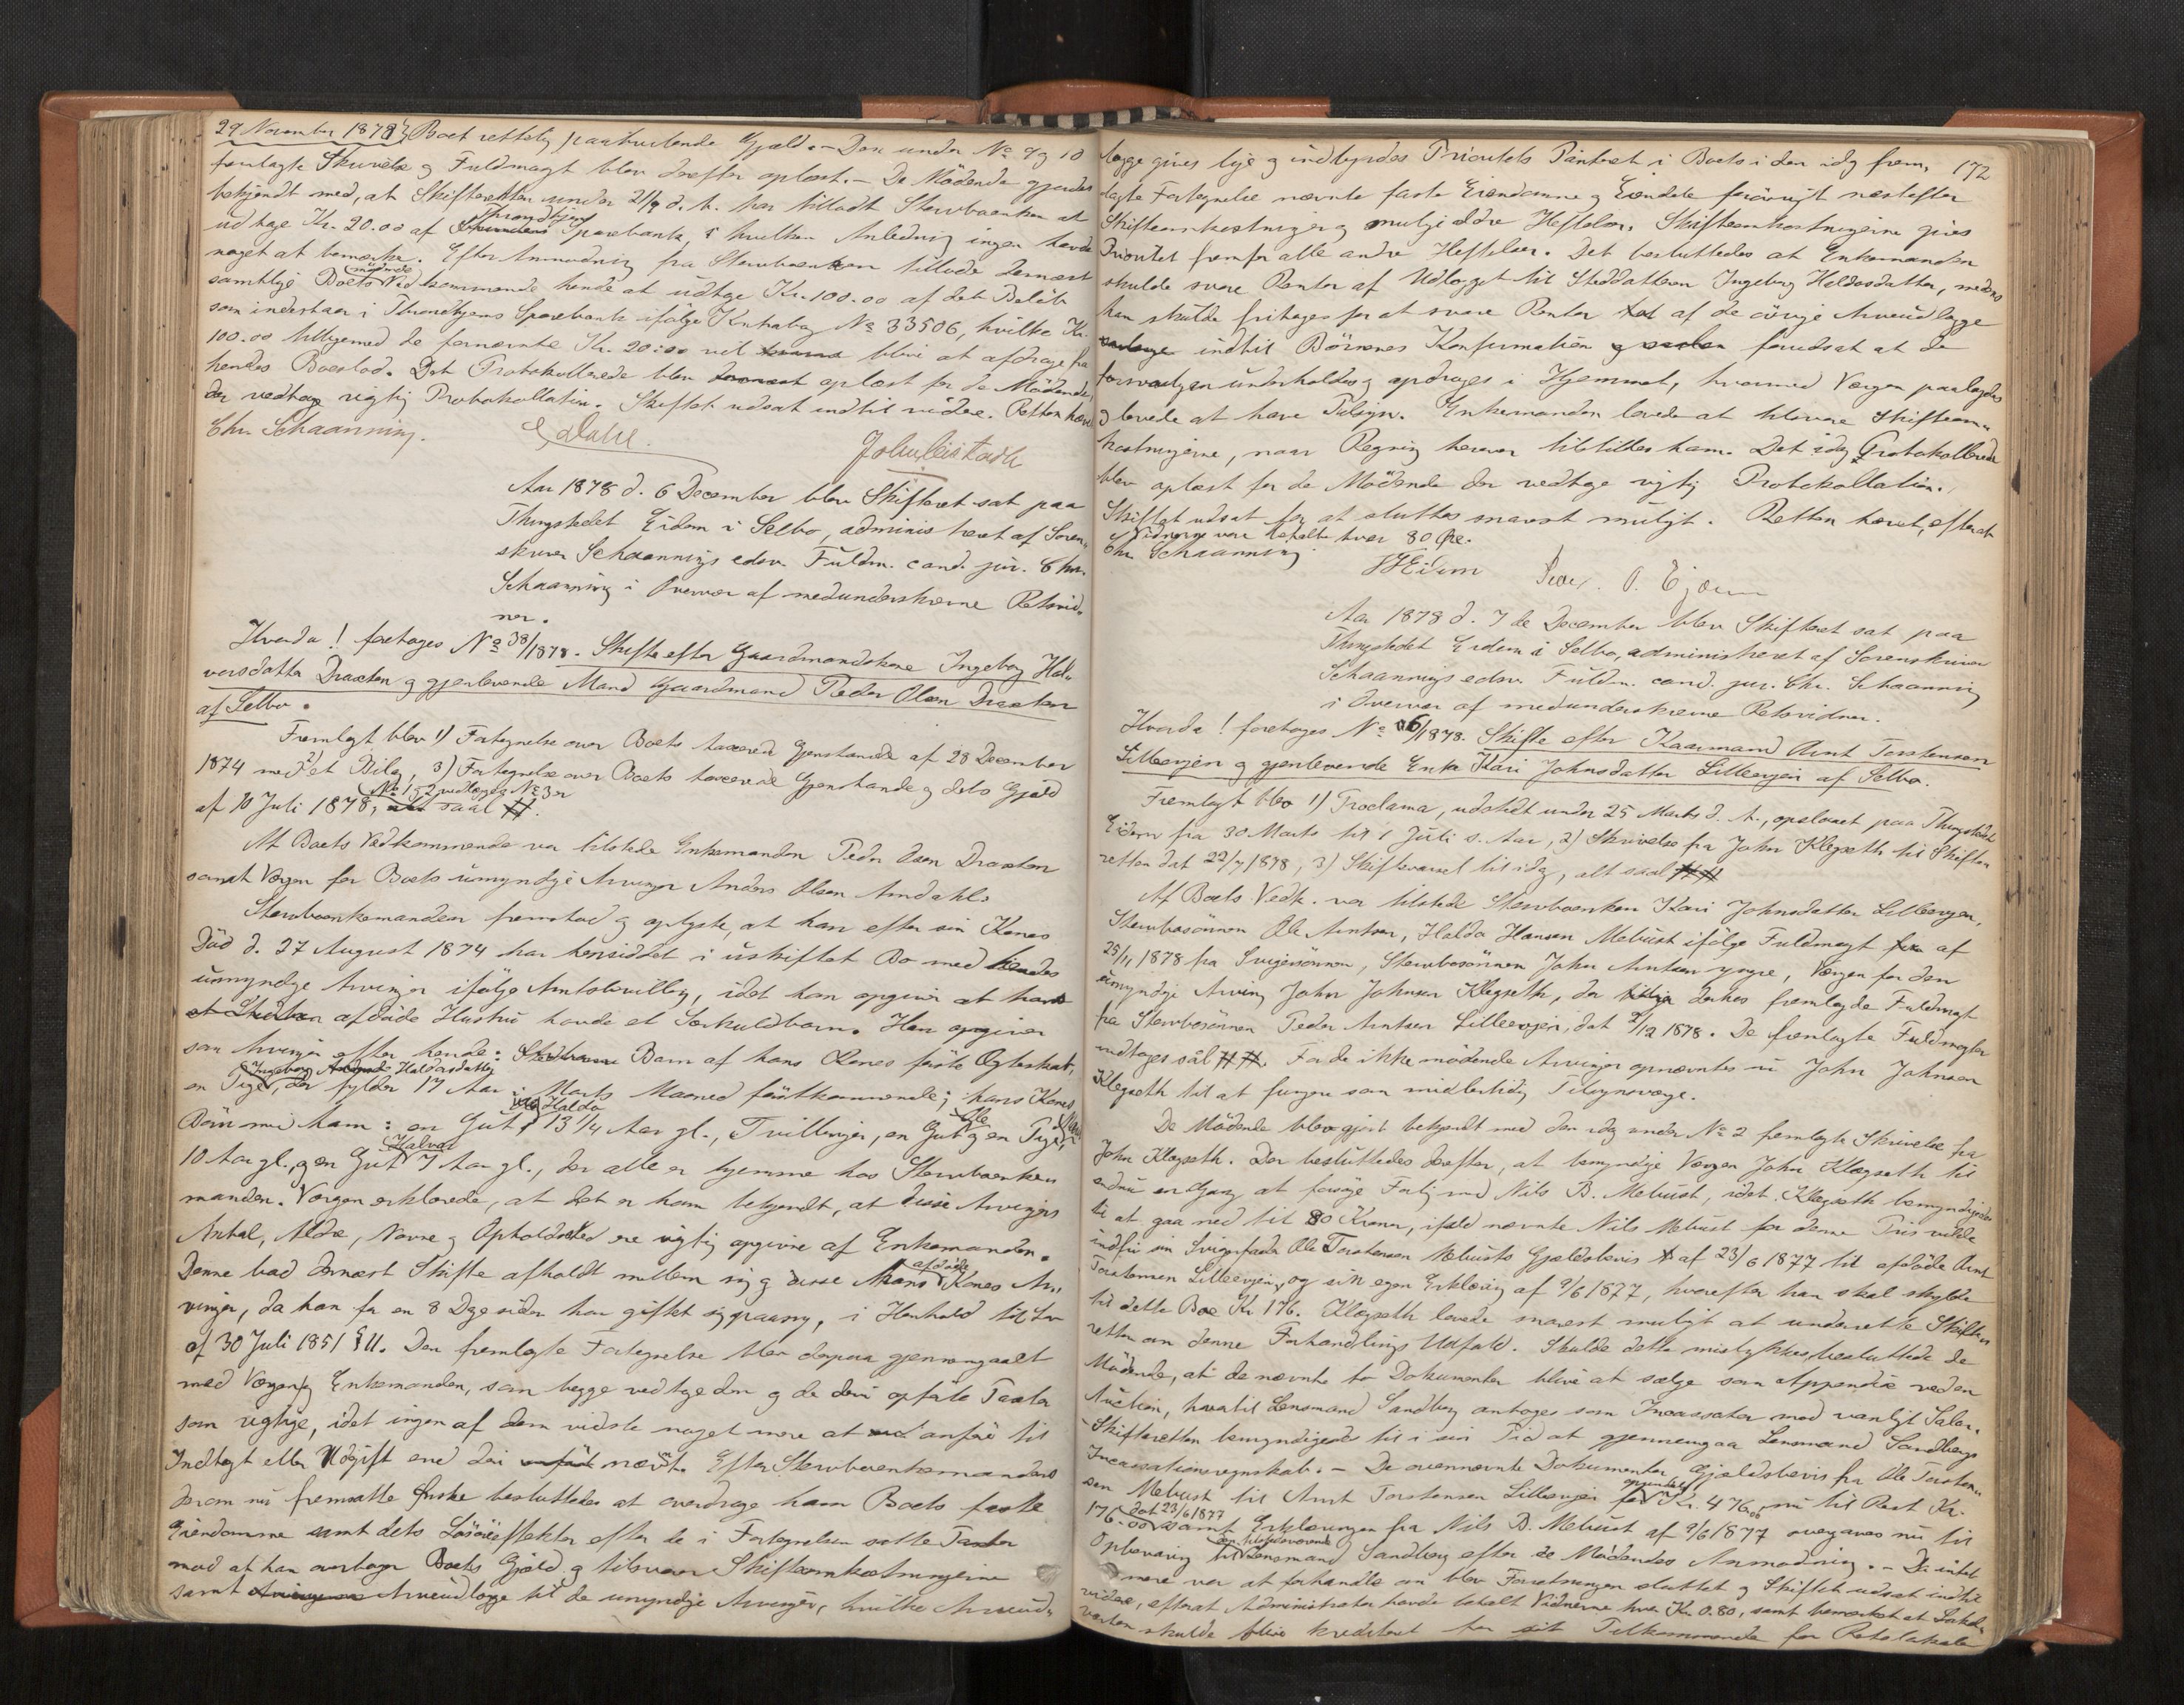 29 November 1878} Boet rettelig paahvilende Gjæld. – Den under No 9 og 10
fremlagte Skrivelse og Fuldmagt blev derefter oplæst. – De Mødende gjordes
bekjendt med, at Skifteretten under d. A. har tilladt Stervboenken at
udtage Kr. 20.00 af Throndhjems Sparebank, i hvilken Anledning ingen havde
noget at bemærke. Efter Anmodning fra Stervboenken tillode dernæst
samtlige Boets mødende Vedkommende hende at udtage Kr. 100.00 af det Beløb
som indestaar i Throndhjems Sparebank ifølge Kontrabog No 33506, hvilke Kr.
100.00 tilligemed de fornævnte Kr. 20.00 vil blive at afdrage fra
hendes Boeslod. Det Protokollerede blev oplæst for de Mødende,
der vedtoge rigtig Protokollation. Skiftet udsat indtil videre. Retten hævet
Chr. Schaanning.
Aar 1878 d. 6 December blev Skifteret sat paa
Thingstedet Eidem i Selbo, administreret af Soren-
skriver Schaannings edsv. Fuldm. cand. jur. Chr.
Schaanning i Overvær af medunderskrevne Retsvid-
ner.
Hvorda! foretoges No 38/1878. Skifte efter Gaardmandskone Ingeborg Hal-
vorsdatter Draxten og gjenlevende Mand Gaardmand Peder Olsen Draxten
af Selbo.
Fremlagt blev 1) Fortegnelse over Boets taxerede Gjenstande af 28 December
1874 med 2) et Bilag, 3) Fortegnelse over Boets taxerede Gjenstande og dets Gjæld
af 10 Juli 1878, No 1 & 2 vedlægges No 3
Af Boets Vedkommende var tilstede Enkemanden Peder Olsen Draxten
samt Værgen for Boets umyndige Arvinger Anders Olsen Amdahl.
Stervboenkemanden fremstod og oplyste, at han efter sin Kones
Død d. 27 August 1874 har hensiddet i uskiftet Bo med hendes
umyndige Arvinger ifølge Amtsbevilling, idet han opgiver at hans
afdøde Hustru havde et Særkuldbarn. Han opgiver
som Arvinger efter hende: Barn af hans Kones første Ægteskab,
en Pige, Ingeborg Haldosdatter der fylder 17 Aar i Marts Maaned førstkommende; hans Kones
Børn med ham: en Gut Haldo 13 1/4 Aar gl., Tvillinger, en Gut Ole og en Pige
10 Aar gl., og en Gut Halvor 7 Aar gl., der alle er hjemme hos Stervboenke-
manden. Værgen erklærede, at det er ham bekjendt, at disse Arvingers
Antal, Alder, Navne og Opholdssted ere rigtig opgivne af Enkemanden.
Denne bad dernæst Skifte afholdt mellem sig og disse hans afdøde Kones Ar-
vinger, da han for en 8 Dage siden har giftet sig paany, i Henhold til Lov
af 30 Juli 1851 § 11. Den fremlagte Fortegnelse blev derpaa gjennemgaaet
med Værgen og Enkemanden, som begge vedtoge den og de deri opførte Taxter
som rigtige, idet ingen af dem vidste noget mere at anføre til
Indtægt eller Udgift end deri nævnt. Efter Stervboenkemandens
derom nu fremsatte Ønske besluttedes at overdrage ham Boets faste
Eiendomme samt dets Løsøreeffekter efter de i Fortegnelsen satte Taxter
mod at han overtager Boets Gjæld og tilsvarer Skifteomkostningerne
samt Arveudlægge til de umyndige Arvinger, hvilke Arveud-
172
lægge gives lige og indbyrdes Prioritets Panteret i Boets i den idag frem-
lagte Fortegnelse nævnte faste Eiendomme og Eiendele forøvrigt næstefter
Skifteomkostninger og mulige ældre Heftelser. Skifteomkostningerne gives
Prioritet fremfor alle andre Heftelser. Det besluttedes at Enkemanden
skulde svare Renter af Udlægget til Steddatteren Ingeborg Haldosdatter, medens
han skulde fritages for at svare Renter af de øvrige Arveudlægge
indtil Børnenes Konfirmation forudsat at de
forsvarligen underholdes og opdrages i Hjemmet, hvormed Værgen paalagdes
og lovede at have Tilsyn. Enkemanden lovede at tilsvare Skifteom-
kostningerne, naar Regning herover tilstilles ham. Det idag Protokollerede
blev oplæst for de Mødende der vedtoge rigtig Protokollation.
Skiftet udsat for at sluttes snarest muligt. Retten hævet, efterat
Vidnerne vare betalte hver 80 Øre.
Chr. Schaanning
Aar 1878 d. 7de December blev Skifteret sat paa
Thingstedet Eidem i Selbo, administreret af Sorenskriver
Schaannings edsv. Fuldm. cand. jur. Chr. Schaanning
i Overvær af medunderskrevne Retsvidner.
Hvorda! foretoges No 6/1878. Skifte efter Kaarmand Arnt Torstensen
Lilleevjen og gjenlevende Enke Kari Johnsdatter Lilleevjen af Selbo.
Fremlagt blev 1) Proclama, udstedt under 25 Marts d. A., opslaaet paa Thingstedet
Eidem fra 30 Marts til 1 Juli s. Aar, 2) Skrivelse fra John Klegseth til Skifte-
retten dat 22/7 1878, 3) Skiftevarsel til idag, alt saal.
Af Boets Vedk. var tilstede Stervboenken Kari Johnsdatter Lilleevjen,
Stervbosønnen Ole Arntsen, Haldo Hansen Mebust ifølge Fuldmagt af
25/11 1878 fra Svigersønnen, Stervbosønnen John Arntsen yngre, Værgen for den
umyndige Arving John Johnsen Klegseth, der derhos fremlagde Fuldmagt
fra Stervbosønnen Peder Arntsen Lilleevjen, dat /12 1878. De fremlagte Fuldmagter
modtoges saal. For de ikke mødende Arvinger opnævntes nu John Johnsen
Klegseth til at fungere som midlertidig Tilsynsværge.
De Mødende blev gjort bekjendt med den idag under No 2 fremlagte Skrivelse fra
John Klegseth. Der besluttedes derefter, at bemyndige Værgen John Klegseth til
endnu engang at forsøge Forlig med Nils B. Mebust, idet Klegseth bemyndigedes
til at gaa ned til 80 Kroner, ifald nævnte Nils Mebust for denne Pris vilde
indfri sin Svigerfader Ole Torstensen Mebusts Gjældsbevis af 23/6 1877 til afdøde Arnt
Torstensen Lilleevjen, og sin egen Erklæring af 9/6 1877, hvorefter han skal skylde
til dette Boe Kr. 176. Klegseth lovede snarest muligt at underrette Skifte-
retten om denne Forhandlings Udfald. Skulde dette mislykkes besluttede de
Mødende, at de nævnte to Dokumenter blive at sælge som Appendix ved en
Auction, hvortil Lensmand Sandberg antoges som Incassator mod vanligt Salær.
– Skifteretten bemyndigedes til i sin Tid at gjennemgaa Lensmand Sandbergs
Incassationsregnskab. – De ovennævnte Dokumenter Gjældsbevis fra Ole Torsten-
sen Mebust til Arnt Torstensen Lilleevjen oprindelig Kr. 476.00 nu til Rest Kr.
176.00 dat 23/6 1877 samt Erklæringen fra Nils B. Mebust af 9/6 1877 overgaves nu til
Opbevaring til den tilstedeværende Lensmand Sandberg efter de Mødendes Anmodning. – Da intet
mere var at forhandle om blev Forretningen sluttet og Skiftet udsat indtil
videre, efterat Administrator havde betalt Vidnerne hver Kr. 0.80, samt bemærket at
skulde blive krediteret for sit Tilkommende for Retslokale